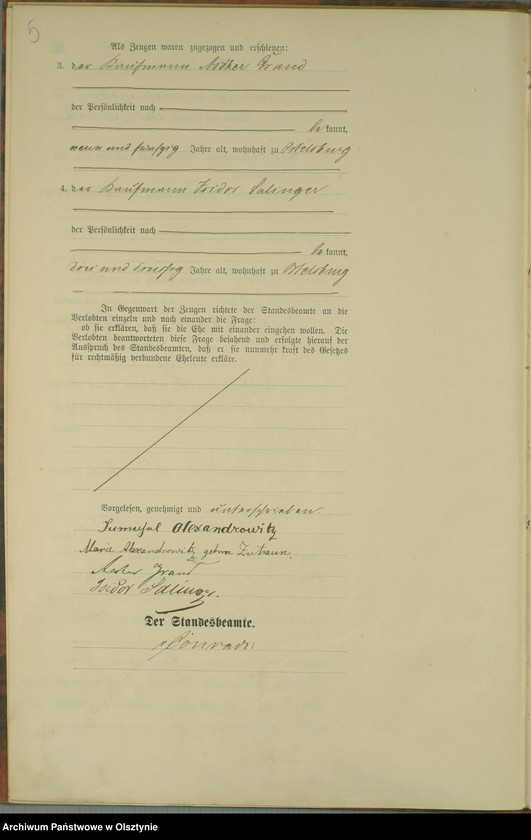 5
Als Zeugen waren zugezogen und erschienen:
3. der Kaufmann Ascher Grand
der Persönlichkeit nach
be kannt,
neun und fünfzig Jahre alt, wohnhaft zu Ortelsburg
4. der Kaufmann Isidor Salinger
der Persönlichkeit nach
be kannt,
drei und dreißig Jahre alt, wohnhaft zu Ortelsburg
In Gegenwart der Zeugen richtete der Standesbeamte an die
Verlobten einzeln und nach einander die Frage:
ob sie erklären, daß sie die Ehe mit einander eingehen wollen. Die
Verlobten beantworteten diese Frage bejahend und erfolgte hierauf der
Ausspruch des Standesbeamten, daß er sie nunmehr kraft des Gesetzes
für rechtmäßig verbundene Eheleute erkläre.
Vorgelesen, genehmigt und unterschrieben
Alexandrowitz
Marie Alexandrowitz geborne
Ascher Grand
Isidor Salinger.
Der Standesbeamte.
Conrad
Archiwum Państwowe w Olsztynie